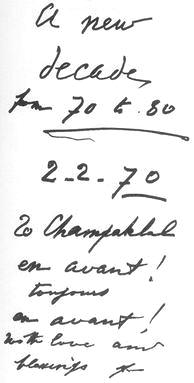 A new
decade,
from 70 to 80
2-2-70
To Champaklal
en avant!
toujours
en avant!
with love and
blessings